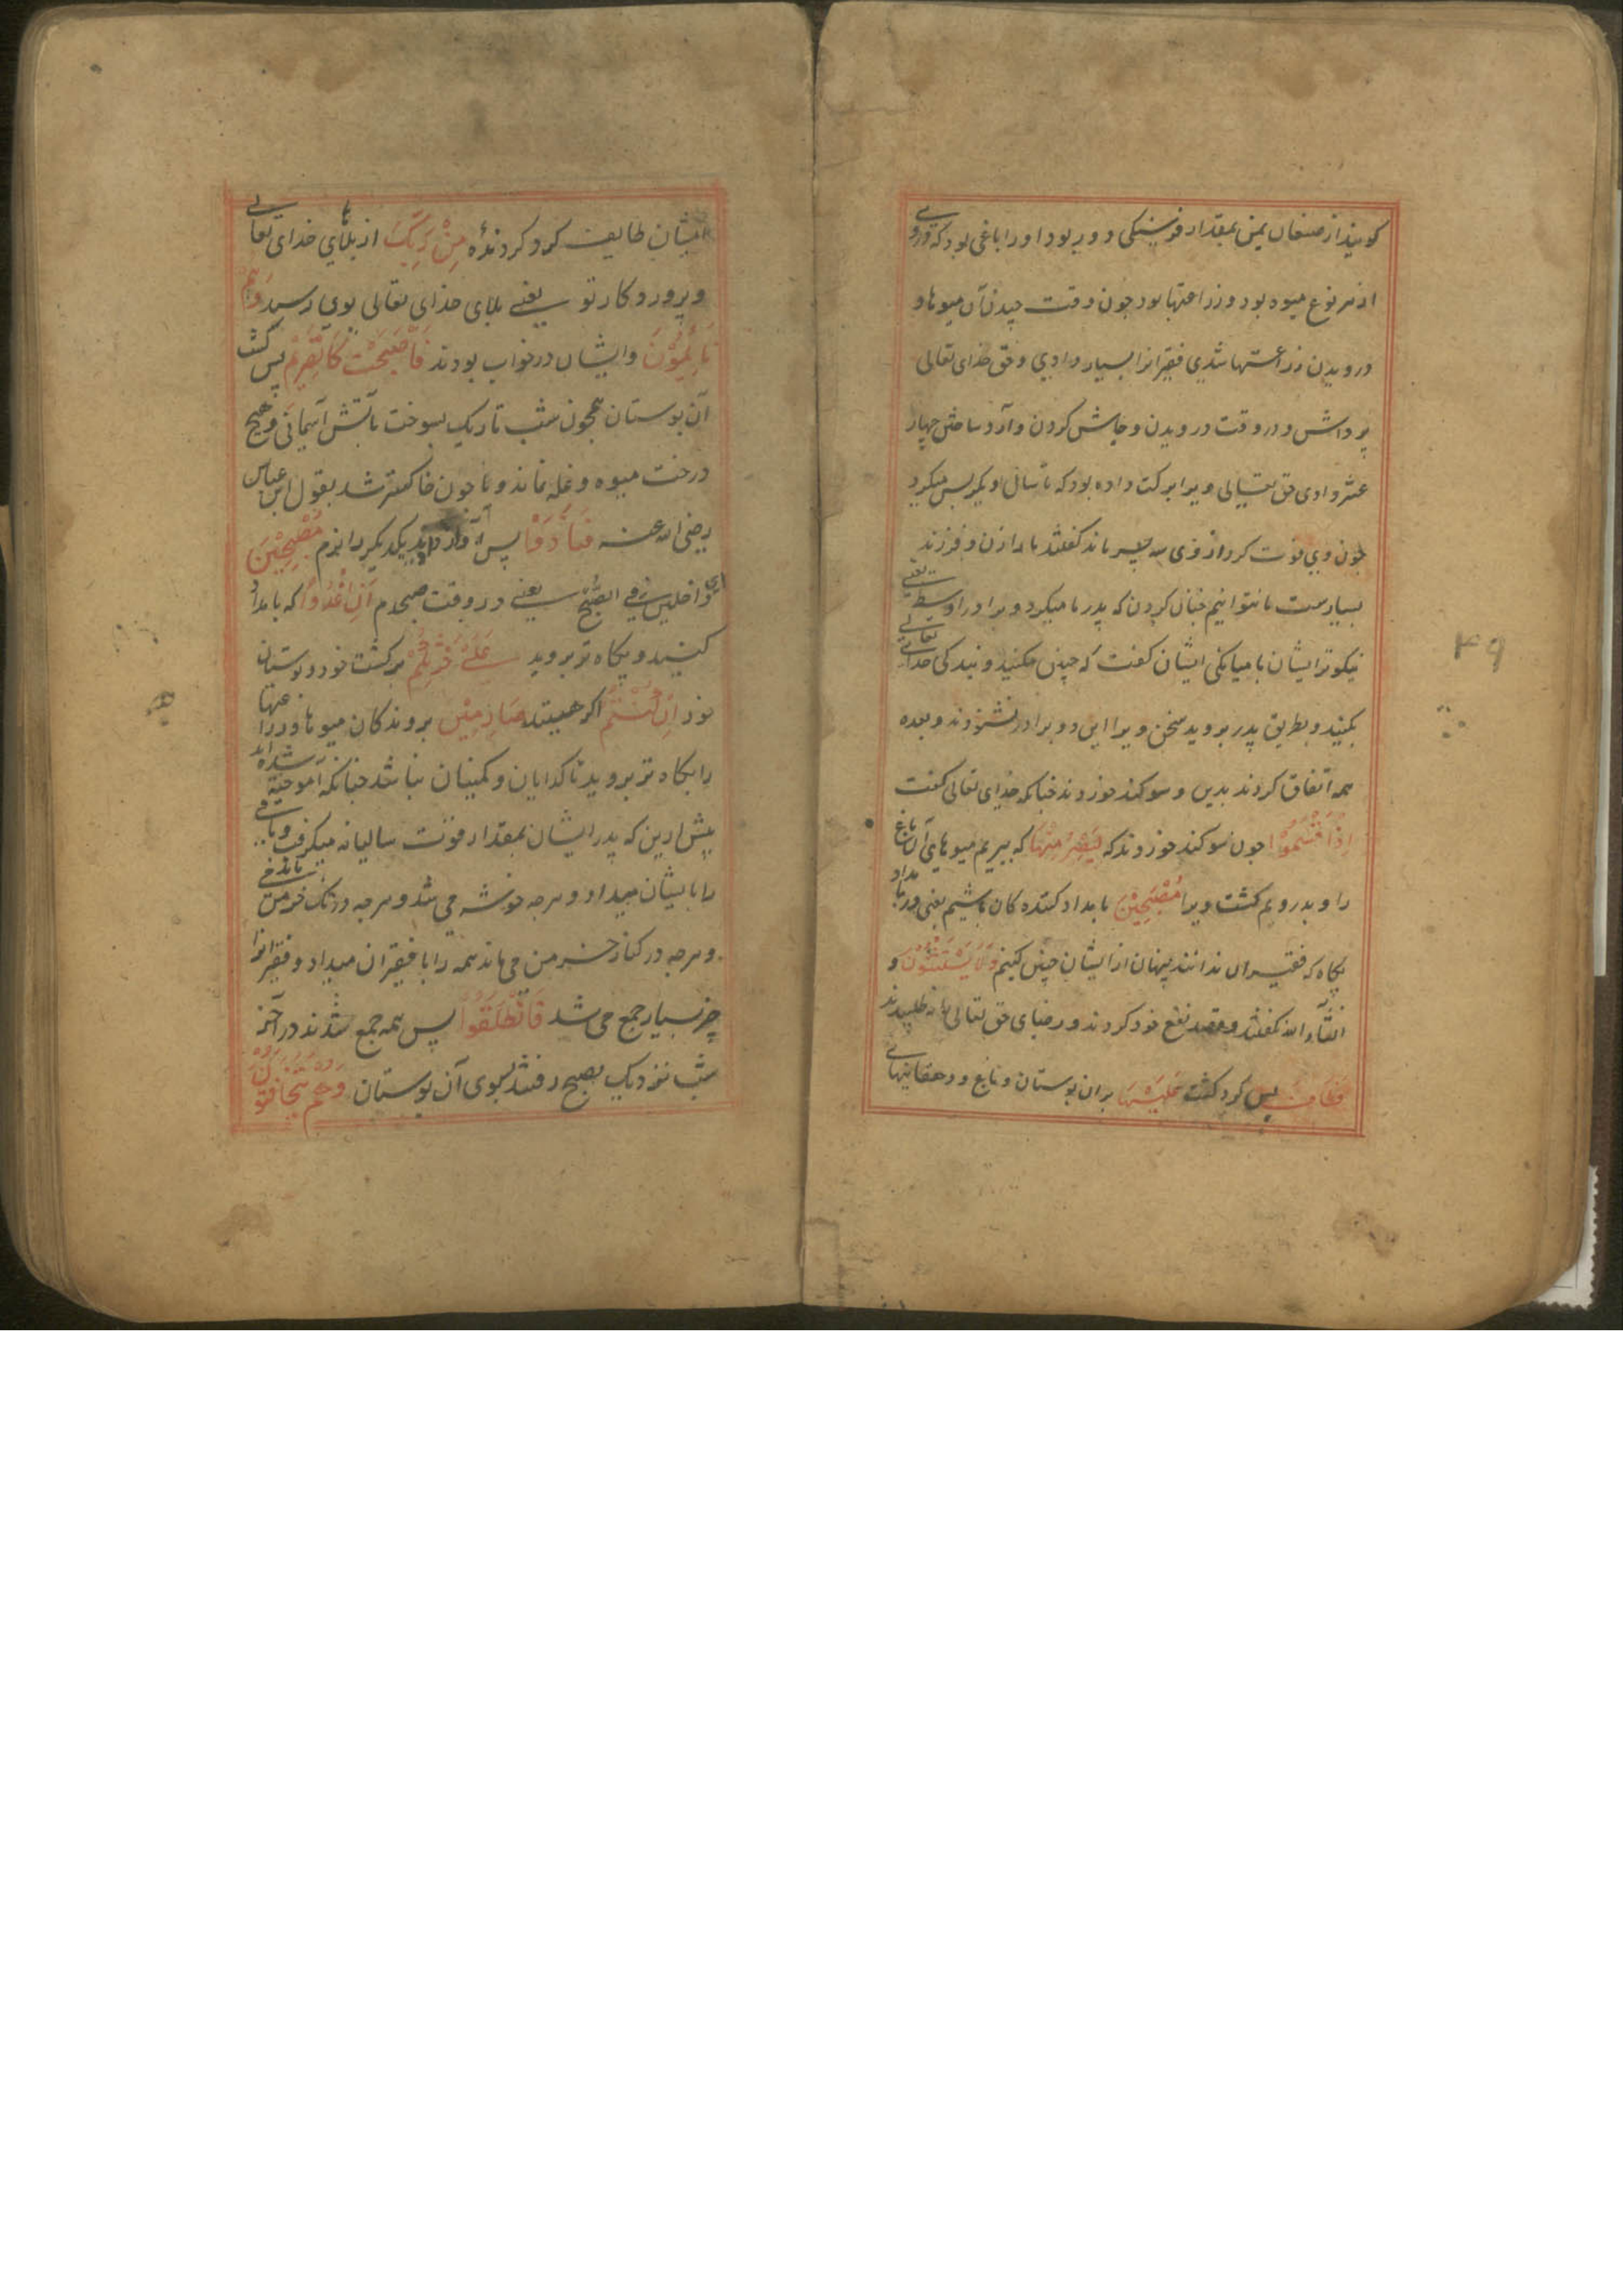 کویند از صنعان یمن بمقدار فرسنکی دور بود اورا باغی بود که دروی
از هر نوع میوه بود و زراعتها بود چون وقت چیدن آن میوها و
درویدن زراعتها شدی فقیرانرا بسیار دادی و حق خدای تعالی
برداشتی و در وقت درویدن و جاش کردن و آرد ساختن چهار
عشر دادی حق تعالی ویرا برکت داده بود که تا سال دیکر بس میکرد
چون وی فوت کرد از وی سه پسر ماند کفتند ما را زن و فرزند
بسیارست ما نتوانیم چنان کردن که پدر ما میکرد و برادر اوسط یعنی
نیکوتر ایشان یا میانکی ایشان کفت که چنین مکنید و بندکی خدای تعالی
بکنید و بطریق پدر بروید سخن ویرا این دو برادر نشنودند و بعده
همه اتفاق کردند بدین و سوکند خوردند چنانکه خدای تعالی کفت
اِذْ اَقْسَمُوْا چون سوکند خوردند که لَيَصْرِمُنَّهَا که ببریم میوهای آن باغ
را و بدرویم کشت ویرا مُصْبِحِيْنَ بامداد کننده کان باشیم یعنی در بامداد
پکاه که فقیران ندانند پنهان از ایشان چنین کنیم وَلَا يَسْتَثْنُوْنَ و
انشاء الله نکفتند و قصد نفع خود کردند و رضای حق تعالی را نه طلبیدند
فَطَافَ پس کرد کشت عَلَيْهَا بران بوستان و باغ و دهقانیهای
ایشان طَايِفٌ کرد کردنده مِنْ رَبِّكَ از بلای خدای تعالی
و پروردکار تو یعنی بلای خدای تعالی بوی رسید وَهُمْ
نَايِمُوْنَ و ایشان در خواب بودند فَاَصْبَحَتْ كَالصَّرِيْمِ پس کشت
آن بوستان همچون شب تاریک بسوخت بآتش آسمانی و هیچ
درخت میوه و غله نماند و یا چون خاکستر شد بقول ابن عباس
رضی الله عنه فَتَنَادَوْا پس آواز دادند یکدیکر را مُصْبِحِيْنَ
ای داخلین فی الصبح یعنی در وقت صبحدم اَنِ اغْدُوْا که بامداد
کنید و پکاه تر بروید عَلٰى حَرْثِكُمْ بر کشت خود و بوستان
خود اِنْ كُنْتُمْ اکر هستید صَارِمِيْنَ برندکان میوها و زراعتها
را پکاه تر بروید تا کدایان و مسکینان نباشد چنانکه آموخته شده اند
پیش ازین که پدر ایشان بمقدار قوت سالیانه میکرفت و باقی
را بایشان میداد و هرچه خوشه می شد و هرچه در تک خرمن باندی
و هرچه در کنار خرمن می ماند همه را با فقیران میداد و فقیرانرا
چیز بسیار جمع می شد فَانْطَلَقُوْا پس همه جمع شدند در آخر
شب نزدیک بصبح رفتند بسوی آن بوستان وَهُمْ يَتَخَافَتُوْنَ